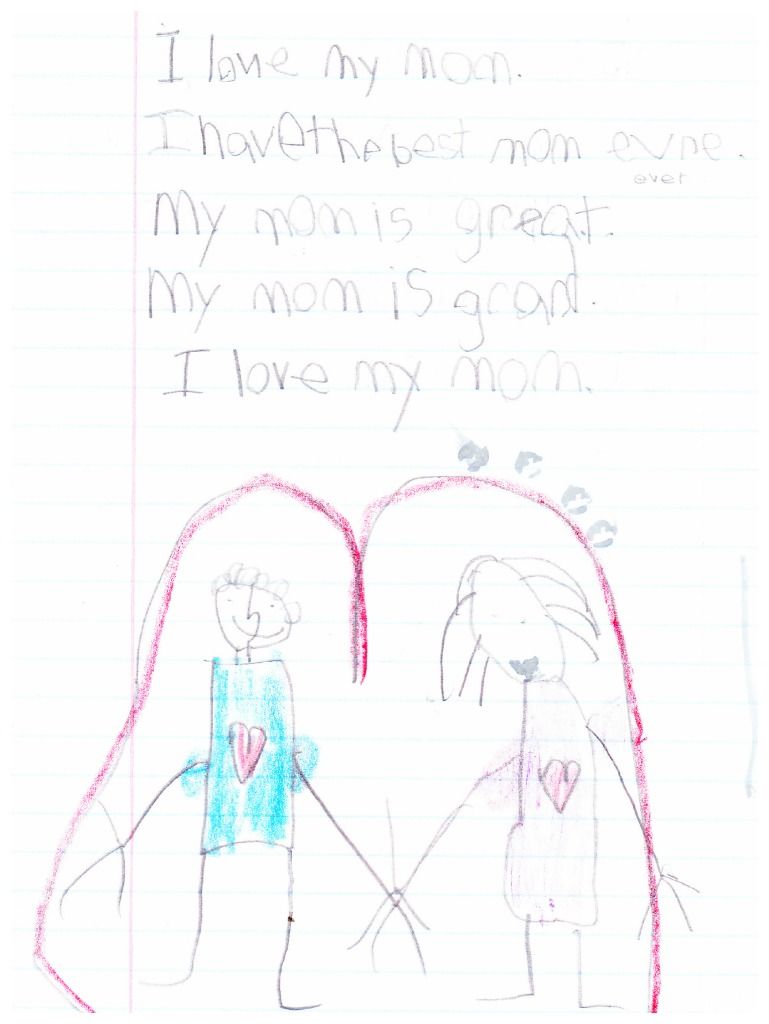 I love my mom.
I have the best mom evne.
ever
My mom is great.
My mom is grand.
I love my mom.